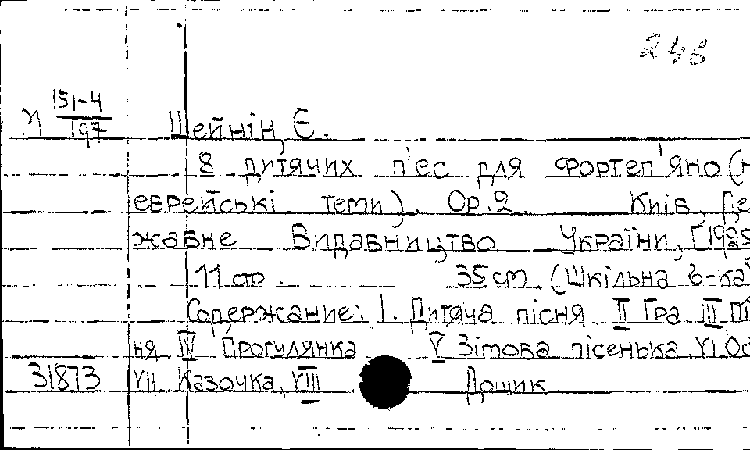 248
И 151-4
197
Шейнін, Є.
8 дитячих п'єс для фортеп'яно (н
еврейські теми). Ор.2 Київ, Де
жавне Видавництво України, [1925
11 стр. 35 см. (Шкільна б-ка
Содержание: I. Дитяча пісня II Гра III Пі
ня IV Прогулянка V Зімова пісенька VI Ос
31873 VII Казочка, VIII Дощик